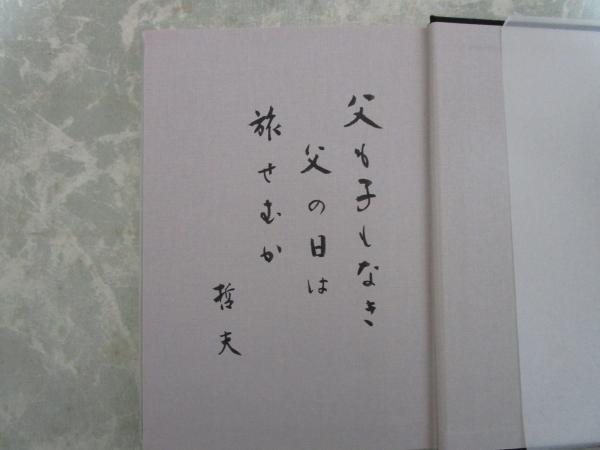 父も子もなき
父の日は
旅せむか
哲夫